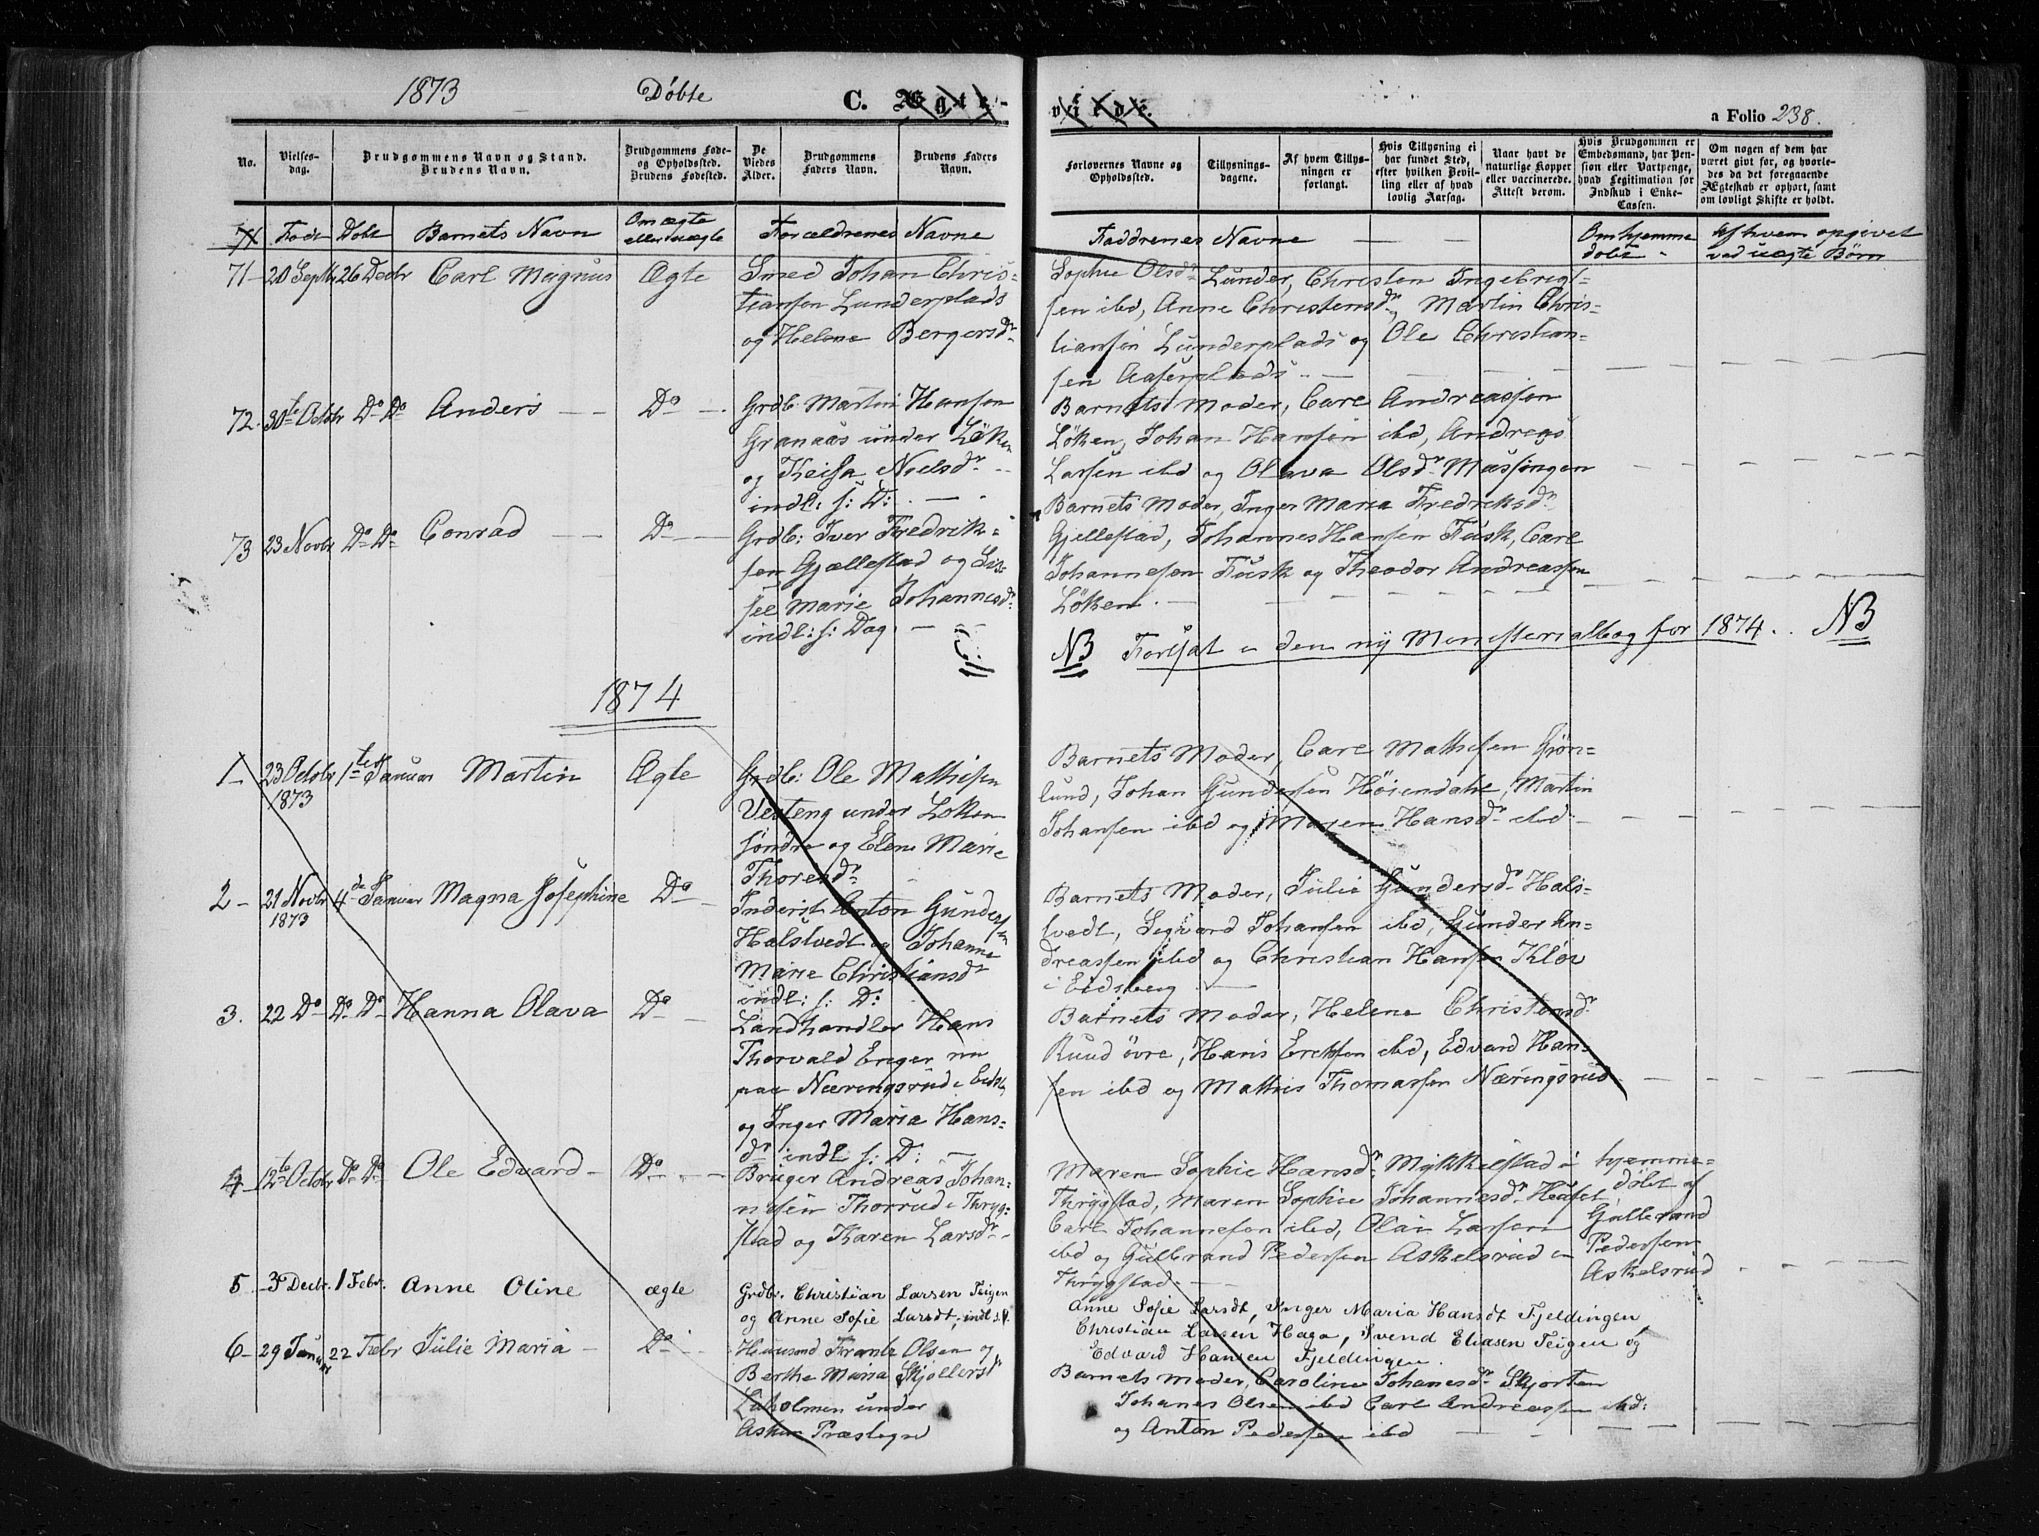 1873 Døbte C. Ægte-
No.
Vielses-
dag.
Brudgommens Navn og Stand.
Brudens Navn.
Brudgommens Føde-
og Opholdssted.
Brudens Fødested.
De
Viedes
Alder.
Brudgommens
Faders Navn.
Brudens Faders
Navn.
Født Døbt Barnets Navn Om ægte Forældrenes Navne
eller uægte
71 20 Septbr 26 Decbr Carl Magnus Ægte Smed Johan Chris-
tiansen Lunderplads
og Helene Bergersdr
72. 30te Octobr Do Do Anders Do Grdb. Martin Hansen
Granaas under Løken
og Nielsdr
indl: f: D:
73 23 Novbr Do Do Conrad Do Grdb: Iver Fredrik-
sen Gjællestad og Lis-
see Marie Johannesdr
indl: f: Dag.
1874
1 23 Octobr 1te Januar Martin Ægte Grdb: Ole Mathisen
1873
Vesteng under Løken
søndre og Elene Marie
Thoresdr
2 21 Novbr 4de Januar Magna Josephine Do Inderst Anton Gundersen
1873
Halstvedt og Johanne
Marie Christiansdr
indl: f: D:
3. 22 Do Do Do Hanna Olava Do Landhandler Hans
Thorvald Enger nu
paa Næringsrud i Eidsb.
og Inger Maria Hans-
dr indl f: D:
4 12te Octobr Do Do Ole Edvard Do Bruger Andreas Johan-
nesen Thorrud i Thryg-
stad og Karen Larsdr
5 3 Decbr. 1 Febr. Anne Oline ægte Grdbr. Christian Larsen Teigen
og Anne Sofie Larsdt, indl s. D.
6 29 Januar 22 Febr Julie Maria Do Huusmand Frants Olsen og
Berthe Maria Skjøllersdr
under
Askim Præstegjd
viede.
a Folio 238.
Forlovernes Navne og
Opholdssted.
Tillysnings-
dagene.
Af hvem Tillys-
ningen er
forlangt.
Hvis Tillysning ei
har fundet Sted,
efter hvilken Bevil-
ling eller af hvad
lovlig Aarsag.
Naar havt de
naturlige Kopper
eller vaccinerede.
Attest derom.
Hvis Brudgommen er
Embedsmand, har Pen-
sion eller Vartpenge,
hvad Legitimation for
Indskud i Enke-
Cassen.
Om nogen af dem har
været gift før, og hvorle-
des da det foregaaende
Ægteskab er ophørt, samt
om lovligt Skifte er holdt.
Faddrenes Navne Om hjemme Af hvem opgivet
døbt ved uægte Børn
Sophie Olsdr Lunder, Christen Ingebrigt-
sen ibd, Anne Christensdr, Martin Chris-
tiansen Lunderplads og Ole Christian-
sen Aaserplads
Barnets Moder, Carl Andreassen
Løken, Johan Hansen ibd, Andreas
Larsen ibd og Olava Olsdr Massingen
Barnets Moder, Inger Maria Fredriksdr
Gjellestad, Johannes Hansen Fusk, Carl
Johannesen Fusk og Theodor Andreassen
Løken.
NB Fortsat i den ny Menisterialbog for 1874. NB
Barnets Moder, Carl Mathisen Grøn-
lund, Johan Gundersen Høiendahl, Martin
Johansen ibd og Maren Hansdr ibd
Barnets Moder, Julie Gundersdr Hals-
tvedt, Sigvard Johansen ibd, Gunder An-
dreassen ibd og Christian Hansen Kløv
i Eidsberg
Barnets Moder, Helene Christensdr
Ruud øvre, Hans Ericksen ibd, Edvard Han-
sen ibd og Mathis Thomassen Næringsrud
Maren Sophie Hansdr Mykkelstad i hjemme-
Thrygstad, Maren Sophie Johannesdr døbt af
Carl Johannesen ibd, Larsen Gulbrand
ibd og Gulbrand Pedersen Askelsrud i Pedersen
Thrygstad. Askelsrud
Anne Sofie Larsdt, Inger Maria Hansdt Fjeldingen
Christian Larsen Haga, Svend Eliasen Teigen og
Edvard Hansen Fjeldingen.
Barnets moder, Caroline Johanesdr Skjorten
Johanes Olsen ibd Carl Andreassen ibd:
og Anton Pedersen ibd